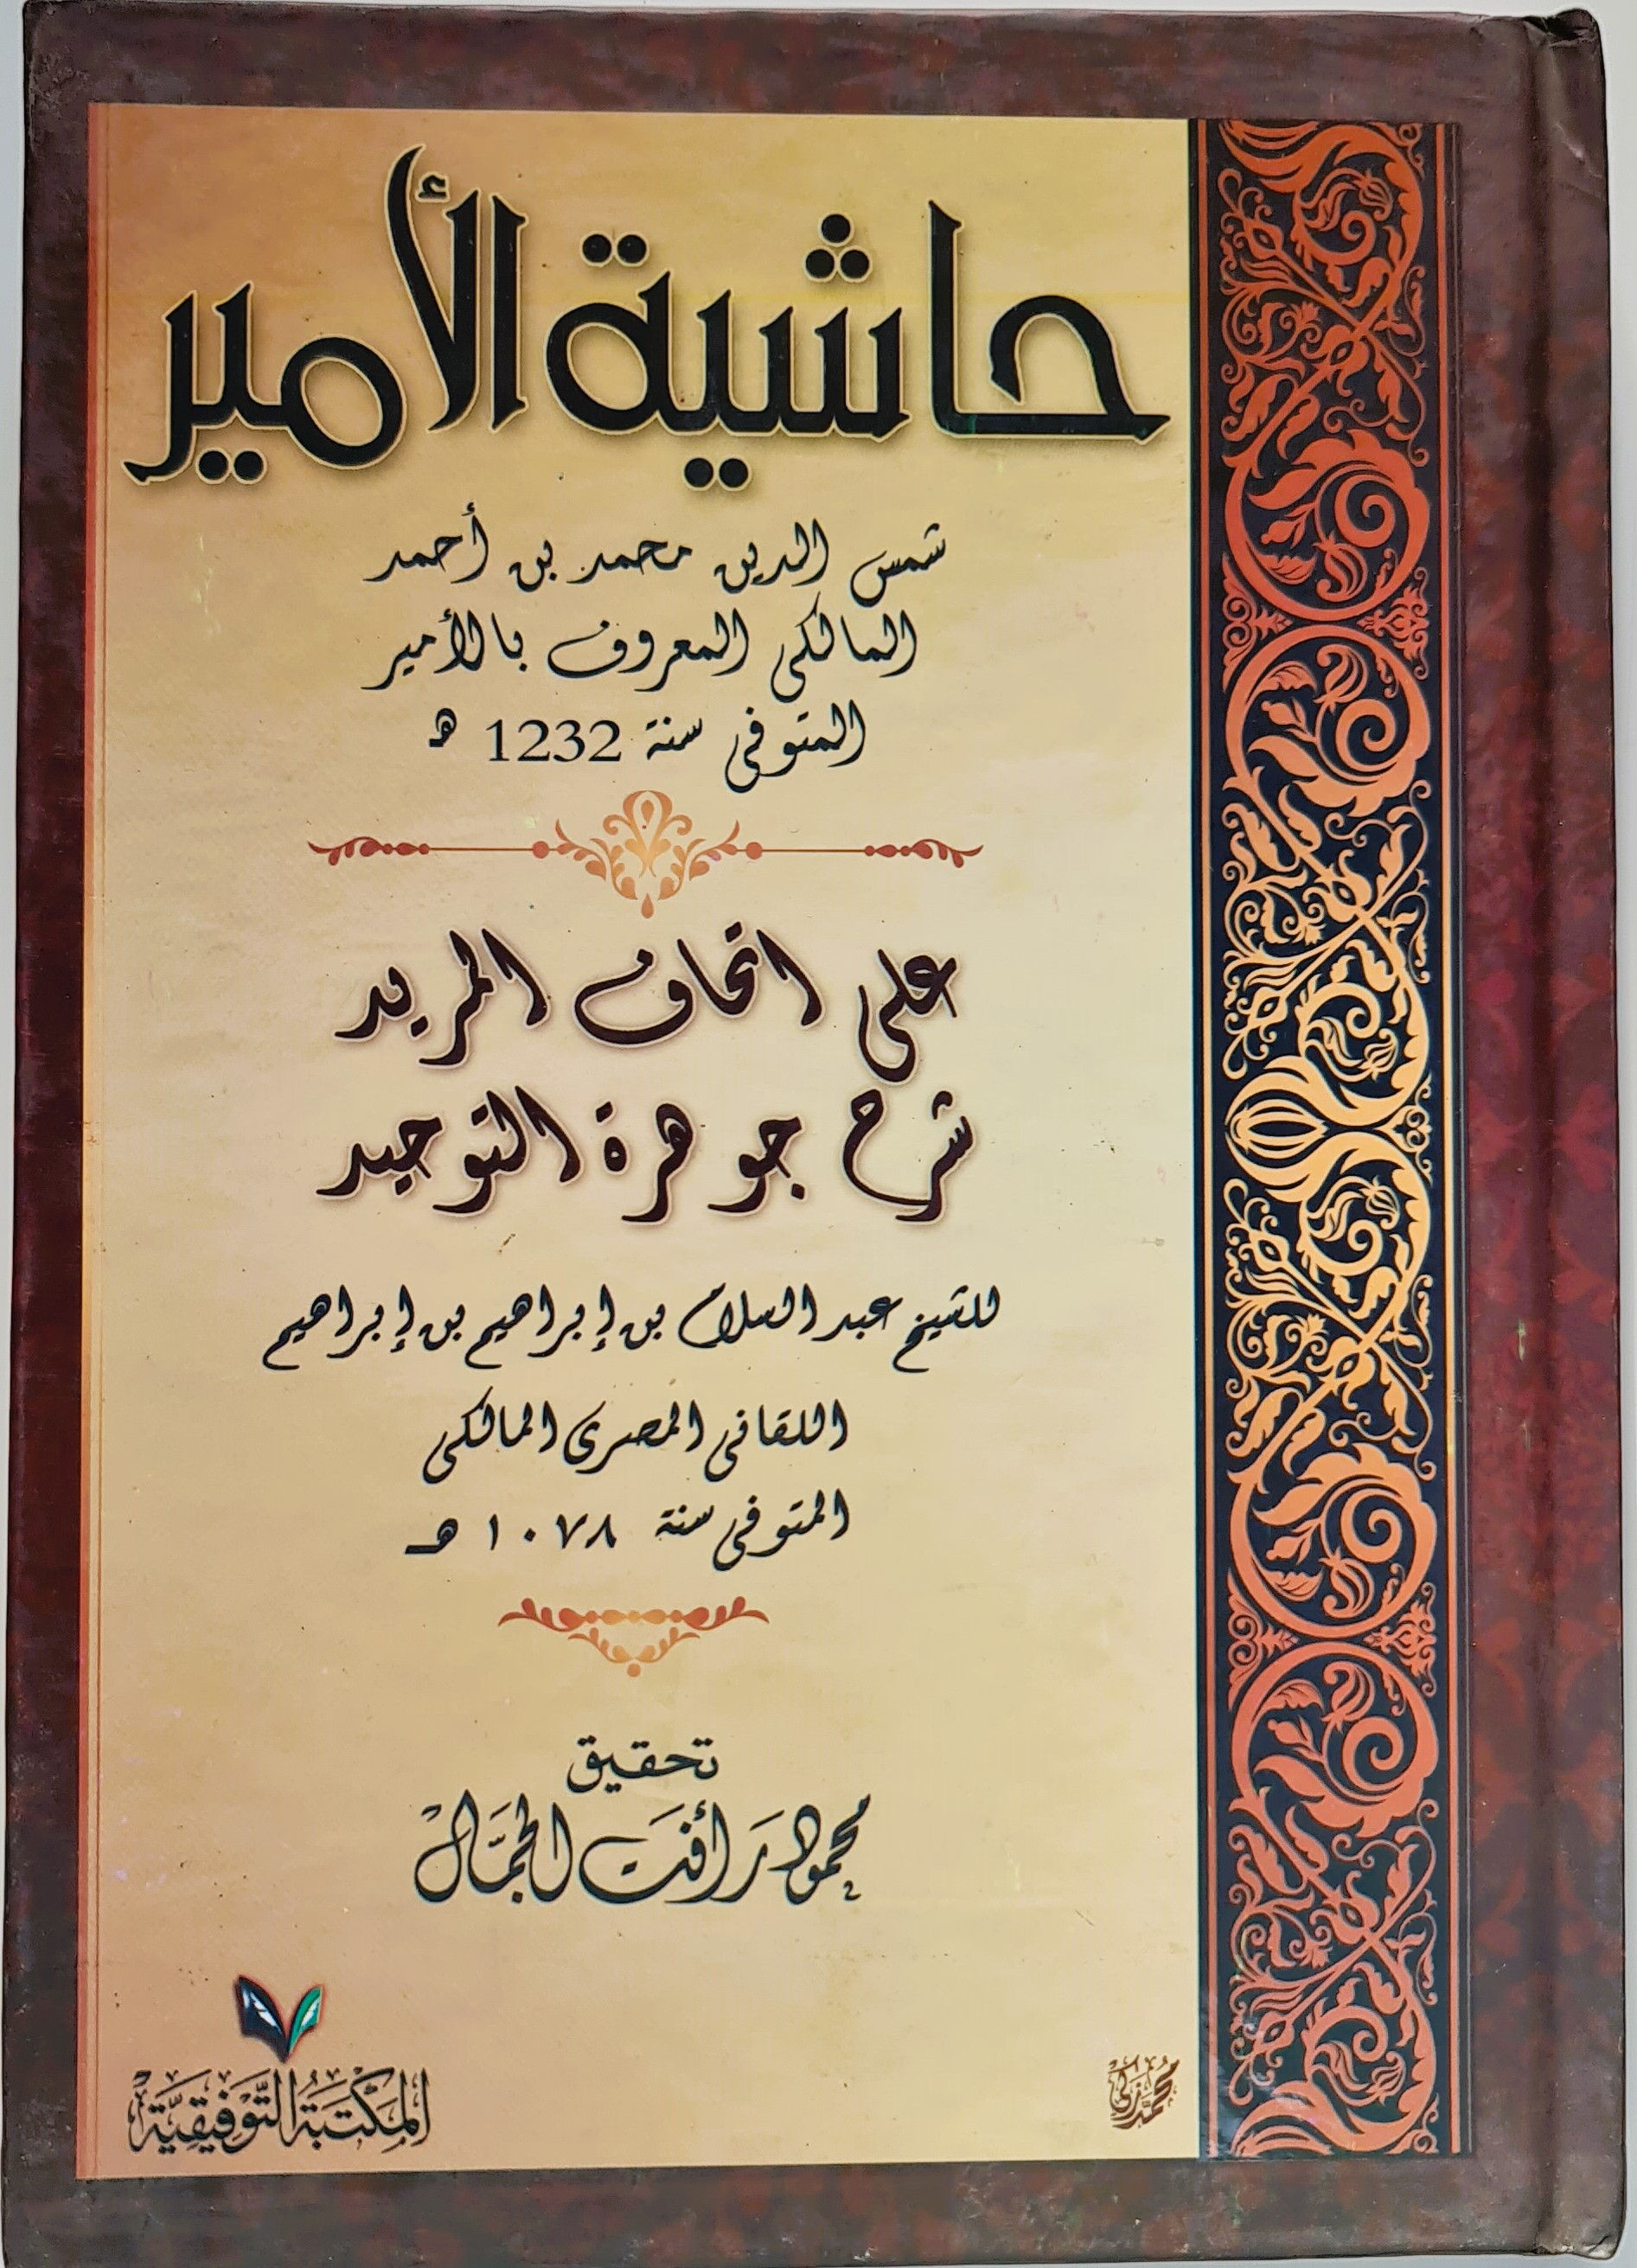 حاشية الأمير
شمس الدين محمد بن أحمد
المالكى المعروف بالأمير
المتوفى سنة 1232 ه
على اتحاف المريد
شرح جوهرة التوحيد
للشيخ عبد السلام بن إبراهيم بن إبراهيم
اللقانى المصرى المالكى
المتوفى سنة ١٠٧٨ هـ
تحقيق
محمود رَأفَت الجمَّال
المَكْتَبَةُ التَّوفِيقِيَّة